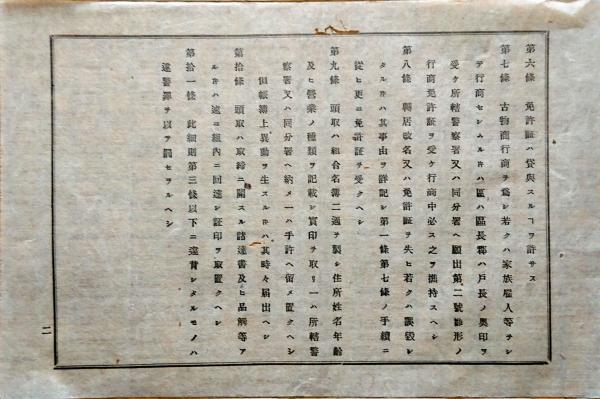 第六條 免許証ハ貸與スルヿヲ許サス
第七條 古物商行商ヲ爲シ若クハ家族雇人等ヲシ
テ行商セシムルキハ區ハ區長郡ハ戸長ノ奥印ヲ
受ケ所轄警察署又ハ同分署ヘ願出第二號雛形ノ
行商免許証ヲ受ケ行商中必ス之ヲ携持スヘシ
第八條 轉居改名又ハ免許証ヲ失ヒ若クハ毀シ
タルキハ其事由ヲ詳記シ第一條第七條ノ手續ニ
從ヒ更ニ免許証ヲ受クヘシ
第九條 頭取ハ組合名簿二通ヲ製シ住所姓名年齡
及ヒ營業ノ種類ヲ記載シ實印ヲ取リ一ハ所轄警
察署又ハ同分署ヘ納メ一ハ手許ヘ留メ置クヘシ
但帳簿上異動ヲ生スルキハ其時々届出ヘシ
第拾條 頭取ハ取締ニ關スル諸達書及ヒ品觸等ア
ルキハ速ニ組內ニ回達シ証印ヲ取置クヘシ
第拾一條 此細則第三條以下ニ違背シタルモノハ
違警罪ヲ以テ罰セラルヘシ
二